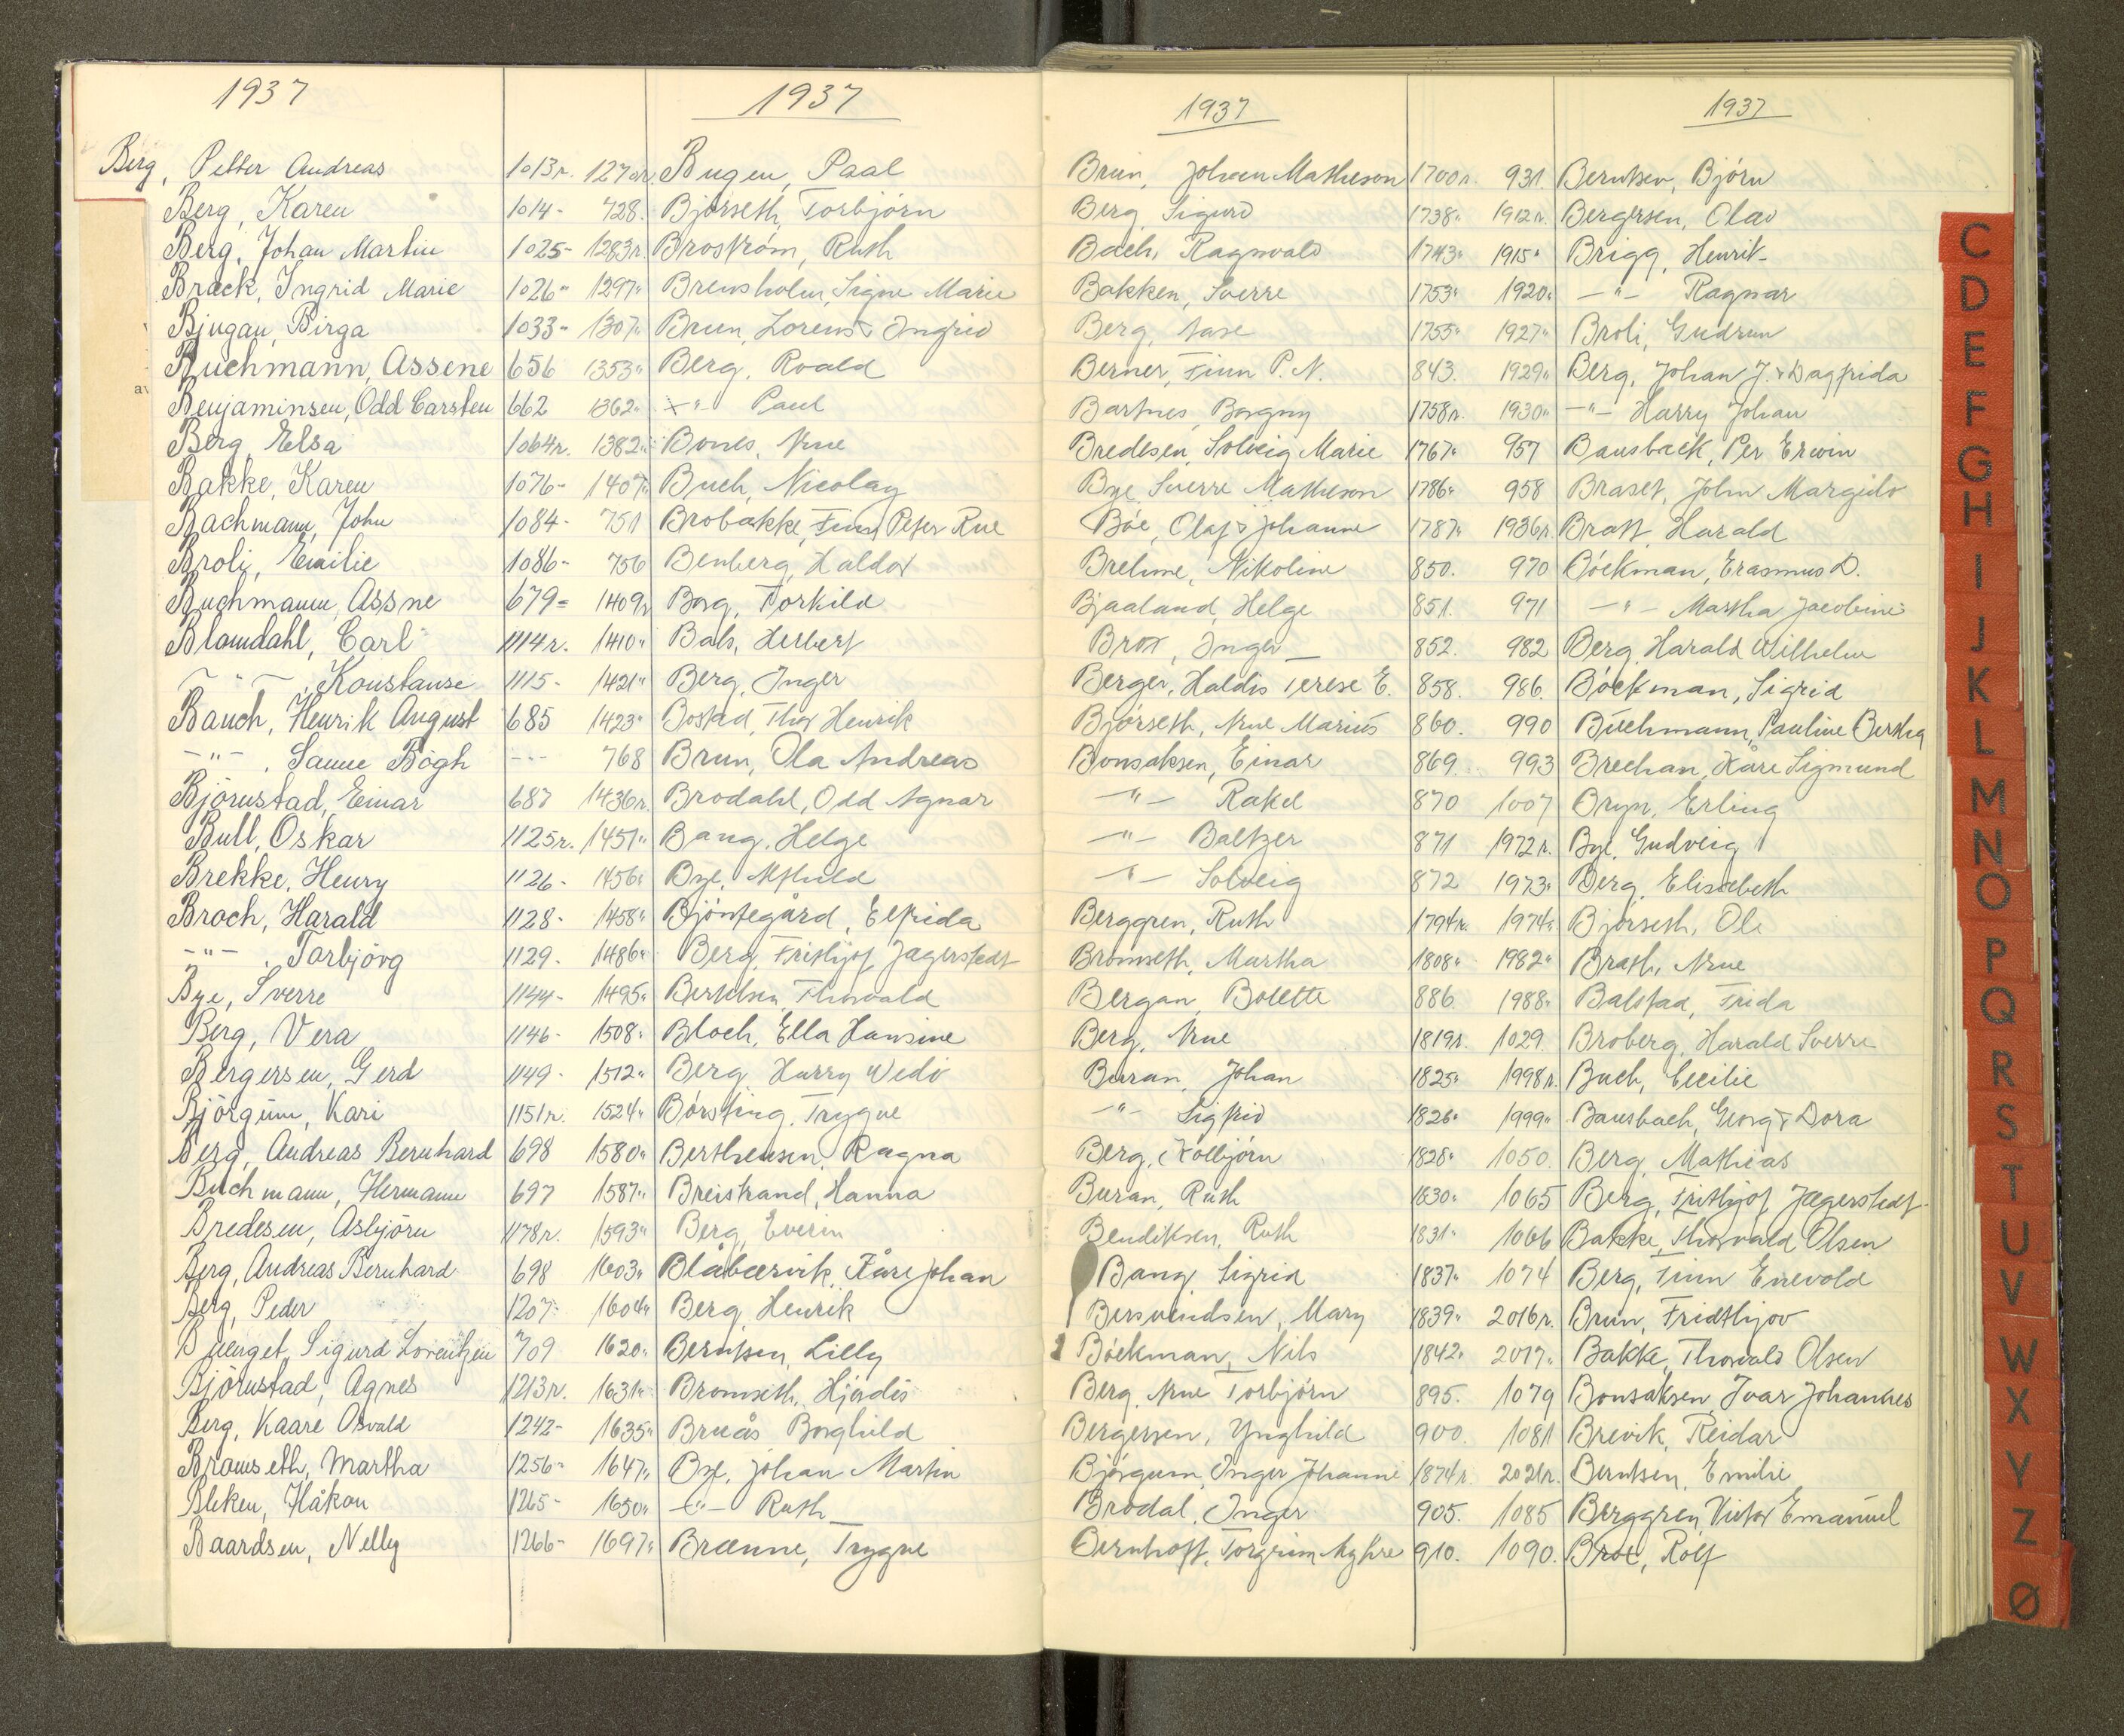 1937
Berg, Petter Andreas 1013r.
Berg, Karen 1014-
Berg, Johan Martin 1025-
Brack, Ingrid Marie 1026"
Bjugan, Birga 1033-
Buchmann, Assene 656
Benjaminsen, Odd Carsten 662
Berg, Elsa 1064r.
Bakke, Karen 1076-
Bachmann, John 1084-
Broli, Emilie 1086-
Buchmann, Assne 679=
Blomdahl, Carl 1114r.
-"- , Konstanse 1115-
Bauch, Henrik August 685
-"- , Sanne Bögh ---
Björnstad, Einar 687
Bull, Oskar 1125r.
Brekke, Henry 1126-
Broch, Harald 1128-
-"- , Torbjörg 1129-
Bye, Sverre 1144-
Berg, Vera 1146-
Bergersen, Gerd 1149-
Björgum, Kari 1151r.
Berg, Andreas Bernhard 698
Buchmann, Hermann 697
Bredesen, Asbjörn 1178r.
Berg, Andreas Bernhard 698
Berg, Peder 1207-
Sigurd Lorentzen 709
Björnstad, Agnes 1213r.
Berg, Kaare Osvald 1242-
Bromseth, Martha 1256-
Bleken, Håkon 1265-
Baardsen, Nelly 1266-
1937
1270r. Bugen, Paal
728. Bjørseth, Torbjørn
1283r. Brostrøm, Ruth
1297" Brensholm, Signe Marie
1307" Brun, Lorens & Ingrid
1353" Berg, Roald
1362" -"- Paul
1382" Bones, Arne
1407" Buch, Nicolay
751 Brobakke, Finn Peter Rue
756 Benberg, Haldor
1409r Borg, Torkild
1410" Bals, Herbert
1421" Berg, Inger
1423" Bostad, Thor Henrik
768 Brun, Ola Andreas
1436r. Brodahl, Odd Agnar
1451" Bang, Helge
1456" Bye, Alfhild
1458" Bjøntegård, Elfrida
1486" Berg, Frithjof Jagerstedt
1495" Bertelsen, Thorvald
1508" Bloch, Ella Hansine
1512" Berg, Harry Wedø
1524" Børsting, Trygve
1580" Berthensen, Ragna
1587" Breistrand, Hanna
1593" Berg, Everin
1603" Blåbærvik, Kåre Johan
1604" Berg, Henrik
1620" Berntsen, Lilly
1631" Bromseth, Hjørdis
1635" Bruås Borghild
1647" Bye, Johan Martin
1650" -"- Ruth
1697" Brænne, Trygve
1937
Brun, Johan Matheson 1700r.
Berg, Sigurd 1738"
Bach, Ragnvald 1743"
Bakken, Sverre 1753"
Berg, Aase 1755"
Berner, Finn P. N. 843.
Bartnes, Borgny 1758r.
Bredesen, Solveig Marie 1767"
Bye, Sverre Matheson 1786"
Bøe, Olaf & Johanne 1787"
Brehme, Nikoline 850.
Bjaaland, Helge 851.
Brox, Inger 852.
Berger, Haldis Terese E. 858.
Bjørseth, Arne Marius 860.
Bonsaksen, Einar 869.
-"- Rakel 870
-"- Baltzer 871
-"- Solveig 872
Berggren, Ruth 1794r.
Bromseth, Martha 1808"
Bergan, Bolette 886
Berg, Arne 1819r.
Buran, Johan 1825"
-"- Sigfrid 1826"
Berg, Kolbjørn 1828"
Buran, Ruth 1830"
Bendiksen, Ruth 1831"
Bang, Sigrid 1837"
Bersvendsen, Mary 1839"
Bøckman, Nils 1842"
Berg, Arne Torbjørn 895.
Bergersen, Ynghild 900.
Bjørgum, Inger Johanne 1874r.
Brodal, Inger 905.
Bernhoft, Torgrim Myhre 910.
1937
931. Berntsen, Bjørn
1912r. Bergersen, Olav
1915" Brigg, Henrik
1920" -"- Ragnar
1927" Broli, Gudrun
1929" Berg, Johan J. & Dagfrida
1930" -"- Harry Johan
957 Bausback, Per Erwin
958 Braset, John Margido
1936r. Bratt, Harald
970 Bøckman, Erasmus D.
971 -"- Martha Jacobine
982 Berg, Harald Wilhelm
986. Bøckman, Sigrid
990 Buchmann, Pauline Bertha
993 Brechan, Kåre Sigmund
1007 Bryn, Erling
1972r. Bye, Gudveig
1973" Berg, Elisabeth
1974" Bjørseth, Ole
1982" Brath, Arne
1988" Balstad, Frida
1029. Broberg, Harald Sverre
1998r. Buch, Cecilie
1999" Bausbach, Georg & Dora
1050. Berg, Mathias
1065 Berg, Frithjof Jagerstedt
1066 Bakke, Thorvald Olsen
1074 Berg, Finn Enevold
2016r. Brun, Fridthjov
2017" Bakke, Thorvald Olsen
1079 Bonsaksen, Ivar Johannes
1081 Brevik, Reidar
2021r. Berntsen, Emilie
1085 Berggren, Victor Emanuel
1090. Broe, Rolf
C
D
E
F
G
H
I
J
K
L
M
N
O
P
Q
R
S
T
U
V
W
X
Y
Z
Ø